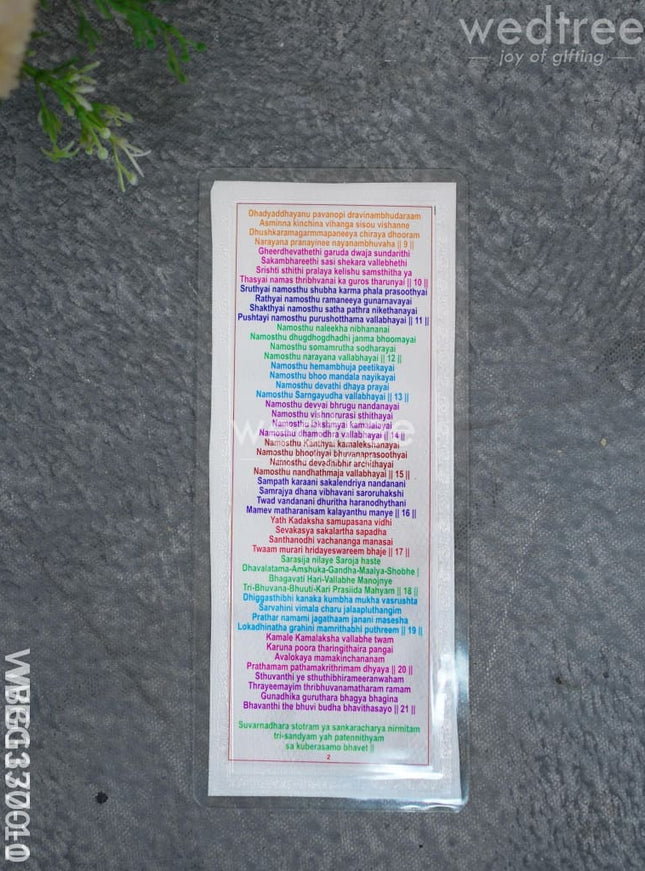 wedtree
joy of gifting
Dhadyaddhayanu pavanopi dravinambhudaraam
Asminna kinchina vihanga sisou vishanne
Dhushkaramagarmmapaneeya chiraya dhooram
Narayana pranayinee nayanambhuvaha || 9 ||
Gheerdhevathethi garuda dwaja sundarithi
Sakambhareethi sasi shekara vallebhethi
Srishti sthithi pralaya kelishu samsthitha ya
Thasyai namas thribhvanai ka guros tharunyai || 10 ||
Sruthyai namosthu shubha karma phala prasoothyai
Rathyai namosthu ramaneeya gunarnavayai
Shakthyai namosthu satha pathra nikethanayai
Pushtayi namosthu purushotthama vallabhayai || 11 ||
Namosthu naleekha nibhananai
Namosthu dhugdhogdhadhi janma bhoomayai
Namosthu somamrutha sodharayai
Namosthu narayana vallabhayai || 12 ||
Namosthu hemambhuja peetikayai
Namosthu bhoo mandala nayikayai
Namosthu devathi dhaya prayai
Namosthu Sarngayudha vallabhayai || 13 ||
Namosthu devyai bhrugu nandanayai
Namosthu vishnorurasi sthithayai
Namosthu lakshmyai kamalalayai
Namosthu dhamodhra vallabhayai || 14 ||
Namosthu Kanthyai kamalekshanayai
Namosthu bhoothyai bhuvanaprasoothyai
Namosthu devadhibhir archithayai
Namosthu nandhathmaja vallabhayai || 15 ||
Sampath karaani sakalendriya nandanani
Samrajya dhana vibhavani saroruhakshi
Twad vandanani dhuritha haranodhythani
Mamev matharanisam kalayanthu manye || 16 ||
Yath Kadaksha samupasana vidhi
Sevakasya sakalartha sapadha
Santhanodhi vachananga manasai
Twaam murari hridayeswareem bhaje || 17 ||
Sarasija nilaye Saroja haste
Dhavalatama-Amshuka-Gandha-Maalya-Shobhe |
Bhagavati Hari-Vallabhe Manojnye
Tri-Bhuvana-Bhuuti-Kari Prasiida Mahyam || 18 ||
Dhiggasthibhi kanaka kumbha mukha vasrushta
Sarvahini vimala charu jalaapluthangim
Prathar namami jagathaam janani masesha
Lokadhinatha grahini mamrithabhi puthreem || 19 ||
Kamale Kamalaksha vallabhe twam
Karuna poora tharingithaira pangai
Avalokaya mamakinchananam
Prathamam pathamakrithrimam dhyaya || 20 ||
Sthuvanthi ye sthuthibhirameeranwaham
Thrayeemayim thribhuvanamatharam ramam
Gunadhika guruthara bhagya bhagina
Bhavanthi the bhuvi budha bhavithasayo || 21 ||
Suvarnadhara stotram ya sankaracharya nirmitam
tri-sandyam yah patennithyam
sa kuberasamo bhavet ||
2
wedtree
WBEG330010